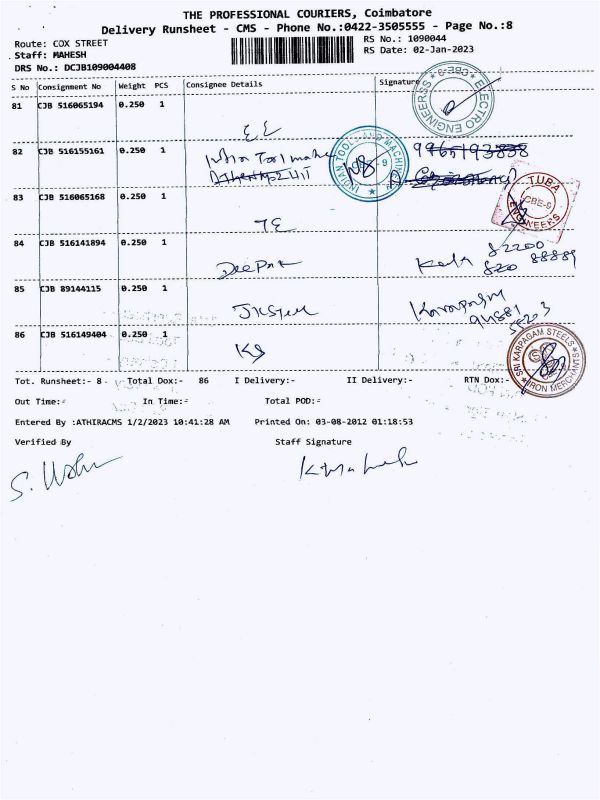 THE PROFESSIONAL COURIERS, Coimbatore
Delivery Runsheet - CMS - Phone No.:0422-3505555 - Page No.:8
Route: COX STREET
RS No.: 1090044
Staff: MAHESH
RS Date: 02-Jan-2023
DRS No.: DCJB109004408
S No Consignment No Weight PCS Consignee Details Signature
81 CJB 516065194 0.250 1
EE
ELECTRO ENGINEERSS CBE-9
82 CJB 516155161 0.250 1
INDIAN TOOLS AND MACHINE
83 CJB 516065168 0.250 1
TE
TUBA ENGINEERS CBE-9
84 CJB 516141894 0.250 1
Deepak
82200
820 88889
85 CJB 89144115 0.250 1
JKSteel
86 CJB 516149404 0.250 1
KS
SRI KARPAGAM STEELS IRON MERCHANTS
Tot. Runsheet:- 8 Total Dox:- 86 I Delivery:- II Delivery:- RTN Dox:-
Out Time:- In Time:- Total POD:-
Entered By :ATHIRACMS 1/2/2023 10:41:28 AM Printed On: 03-08-2012 01:18:53
Verified By Staff Signature